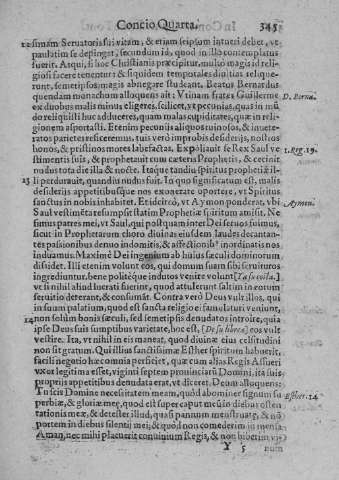 Concio Quarta. 345
simam Seruatoris sui vitam, & etiam seipsum intueri debet, vt
paulatim se despingat, secundum id, quod in illo contemplatus
fuerit. Atqui, si hoc Christianis præcipitur, multo magis id reli-
giosi facere tenentur: & siquidem temporales diuitias relique-
runt, semetipsos magis abnegare studeant. Beatus Bernardus
quendam monachum alloquens ait: Vtinam frater Guilerme
ex duobus malis minus eligeres, scilicet, vt pecunias, quas in mū
do reliquisti huc adduceres, quam malas cupiditates, quas in reli-
gionem asportasti. Etenim pecunijs aliquos ruinosos, & inuete-
ratos parietes reficeremus, tuis verò improbis desiderijs, nostros
honos, & pristinos mores labefactas. Expoliauit se Rex Saul ve
stimentis suis, & prophetauit cum cæteris Prophetis, & cecinit
nudus tota die illa & nocte. Itaque tandiu spiritus prophetiæ il-
li perdurauit, quandiu nudus fuit. In quo significatum est, malis
desiderijs appetitibusque nos exonerare oportere, vt Spiritus
sanctus in nobis inhabitet. Et id circò, vt Aymon ponderat, vbi
Saul vestimēta resumpsit statim Prophetiæ spiritum amisit. Ne
simus patres mei, vt Saul, qui postquam inter Dei seruos fuimus,
sicut in Prophetarum choro diuinas eiusdem laudes decantan-
tes passionibus denuo indomitis, & affectionibꝰ inordinatis nos
induamus. Maximè Dei ingenium ab huius sæculi dominorum
dissidet. Illi etenim volunt eos, qui domum suam sibi seruituros
ingrediuntur, bene politéque indutos venire volunt [Ta su costa.]
vt si nihil aliud lucrati fuerint, quod attulerint saltim in eorum
seruitio deterant, & consumāt. Contra verò Deus vult illos, qui
in suam palatium, quod est sancta religio ei famulaturi veniunt,
non solum bonis sæculi, sed semetipsis denudatos introire, quia
ipse Deus suis sumptibus varietate, hoc est, [De su librea] eos vult
vestire. Ita, vt nihil in eis maneat, quod diuinæ eius celsitudini
non sit gratum. Qui illius sanctissimæ Esther spiritum habuerit,
facili negotio hæc omnia perficiet, quæ cum alias Regis Assueri
vxor legitima esset, viginti septem prouinciarū Domini, ita suis
proprijs appetitibus denudata erat, vt diceret. Deum alloquens:
Tu scis Domine necessitatem meam, quod abominer signum su
perbiæ, & gloriæ meæ, quod est super caput meū in diebus osten
tationis meæ, & detester illud, quasi pannum menstruatę, & nō
portem in diebus silentij mei; & quod non comederim in mensa
Aman, nec mihi placuerit conuiuium Regis, & non biberim vi-
Y 5 num
D. Berna.
1. Reg. 19.
Aymon.
Esther. 14
13
14